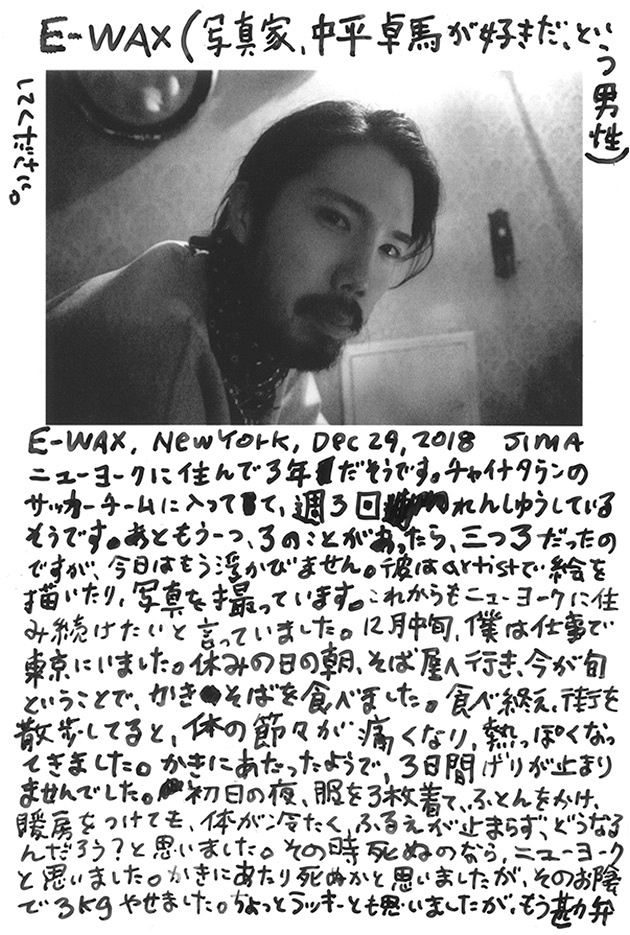 E-WAX (写真家、中平卓馬が好きだ、という男性)
E-WAX, New York, Dec 29, 2018 JIMA
ニューヨークに住んで3年だそうです。チャイナタウンの
サッカーチームに入ってて、週3回れんしゅうしている
そうです。あともう一つ、3のことがあったら、三つ3だったの
ですが、今日はもう浮かびません。彼はartistで絵を
描いたり、写真を撮っています。これからもニューヨークに住
み続けたいと言っていました。12月中旬、僕は仕事で
東京にいました。休みの日の朝、そば屋へ行き、今が旬
ということで、かきそばを食べました。食べ終え、街を
散歩してると、体の節々が痛くなり、熱っぽくなっ
てきました。かきにあたったようで、3日間げりが止まり
ませんでした。初日の夜、服を3枚着て、ふとんをかけ、
暖房をつけても、体が冷たく、ふるえが止まらず、どうなる
んだろう?と思いました。その時死ぬのなら、ニューヨーク
と思いました。かきにあたり死ぬかと思いましたが、そのお陰
で3kgやせました。ちょっとラッキーとも思いましたが、もう勘弁
してください。